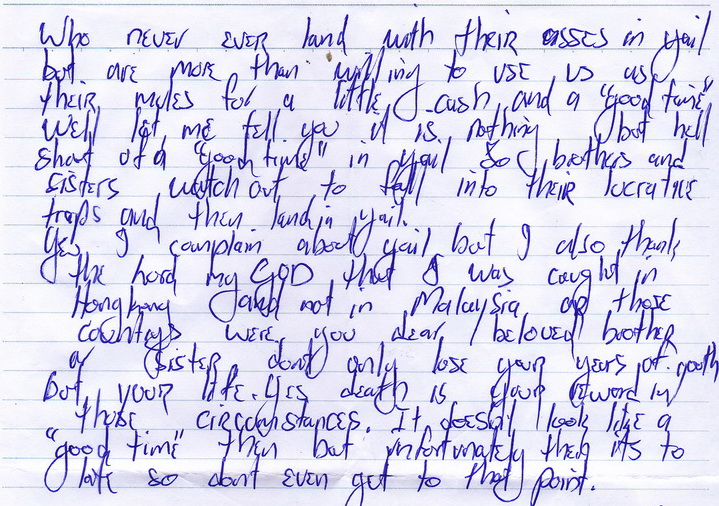 Who never ever land with their asses in yail
but are more than willing to use us as
their mules for a little cash and a "good time"
Well let me tell you it is nothing but hell
short of a "good time" in yail So brothers and
sisters watch out to fall into their lucrative
traps and then land in yail.
Yes I complain about yail but I also thank
the Lord my GOD that I was caught in
HongKong and not in Malaysia or those
countrys were you dear / beloved brother
or sister dont only lose your years of youth
But your life. Yes death is your reward in
those circumstances. It doesnt look like a
"good time" then but unfortunately then its to
late so dont even get to that point.